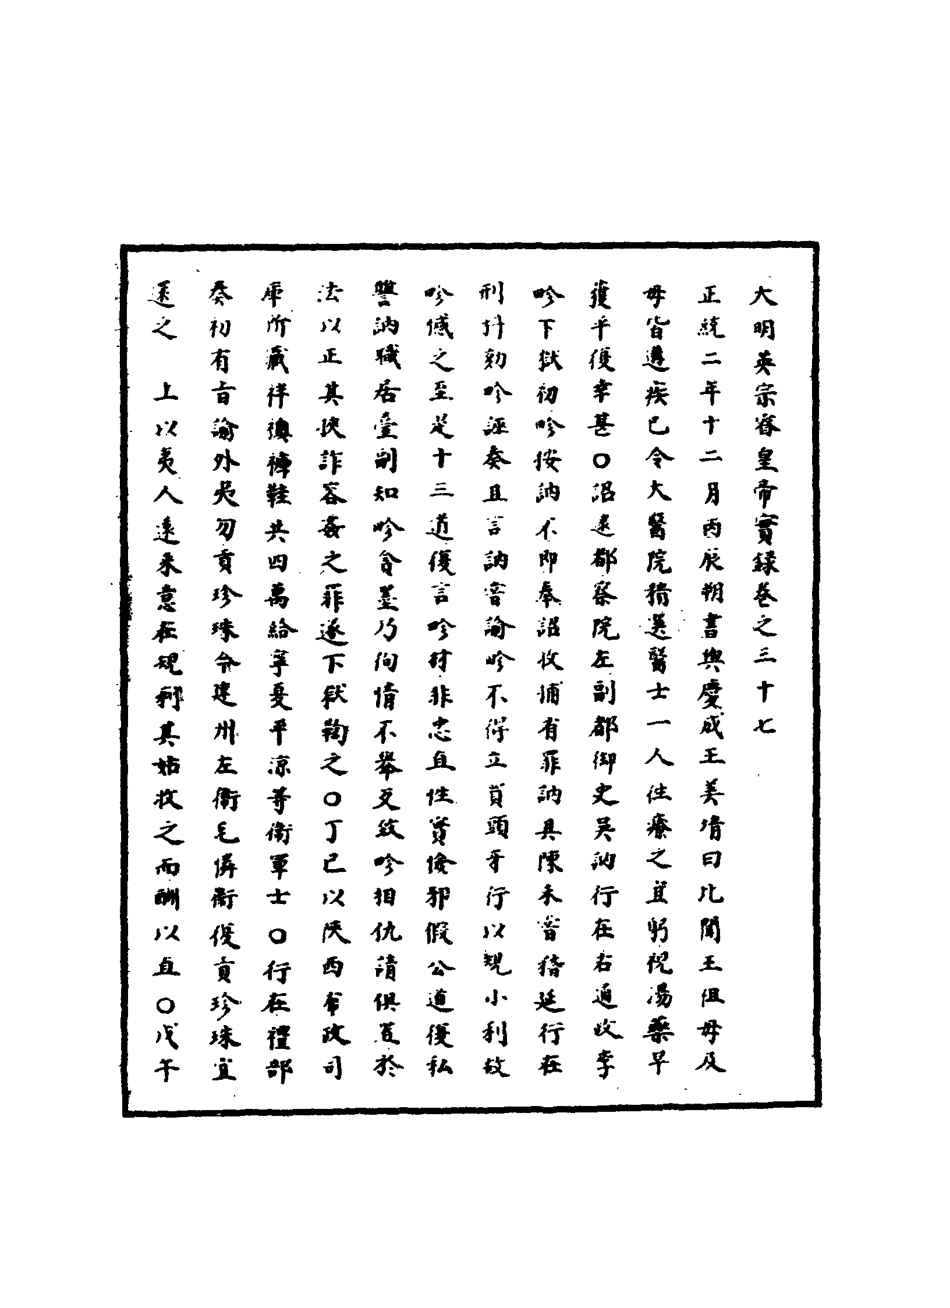 大明英宗睿皇帝實錄卷之三十七
正統二年十二月丙辰朔書與慶成王美堉曰比聞王祖母及
母皆遘疾已令大醫院精選醫士一人往療之宜躬視湯藥早
獲平復幸甚○詔逮都察院左副都御史吳訥行在右通政李
吟下獄初吟按訥不即奉詔收捕有罪訥具陳未嘗稽延行在
刑科劾吟誣奏且言訥嘗諭吟不得立買頭牙行以規小利故
吟憾之至是十三道復言吟封非忠直性實憸邪假公道復私
讐訥職居臺副知吟貪墨乃徇情不舉更致吟相仇請俱置於
法以正其挾詐容姦之罪遂下獄鞫之○丁巳以陝西布政司
庫所藏袢襖褲鞋共四萬給寧夏平涼等衛軍士○行在禮部
奏初有旨諭外夷勿貢珍珠今建州左衛毛憐衛復貢珍珠宜
還之　上以夷人遠來意在規利其姑收之而酬以直○戊午